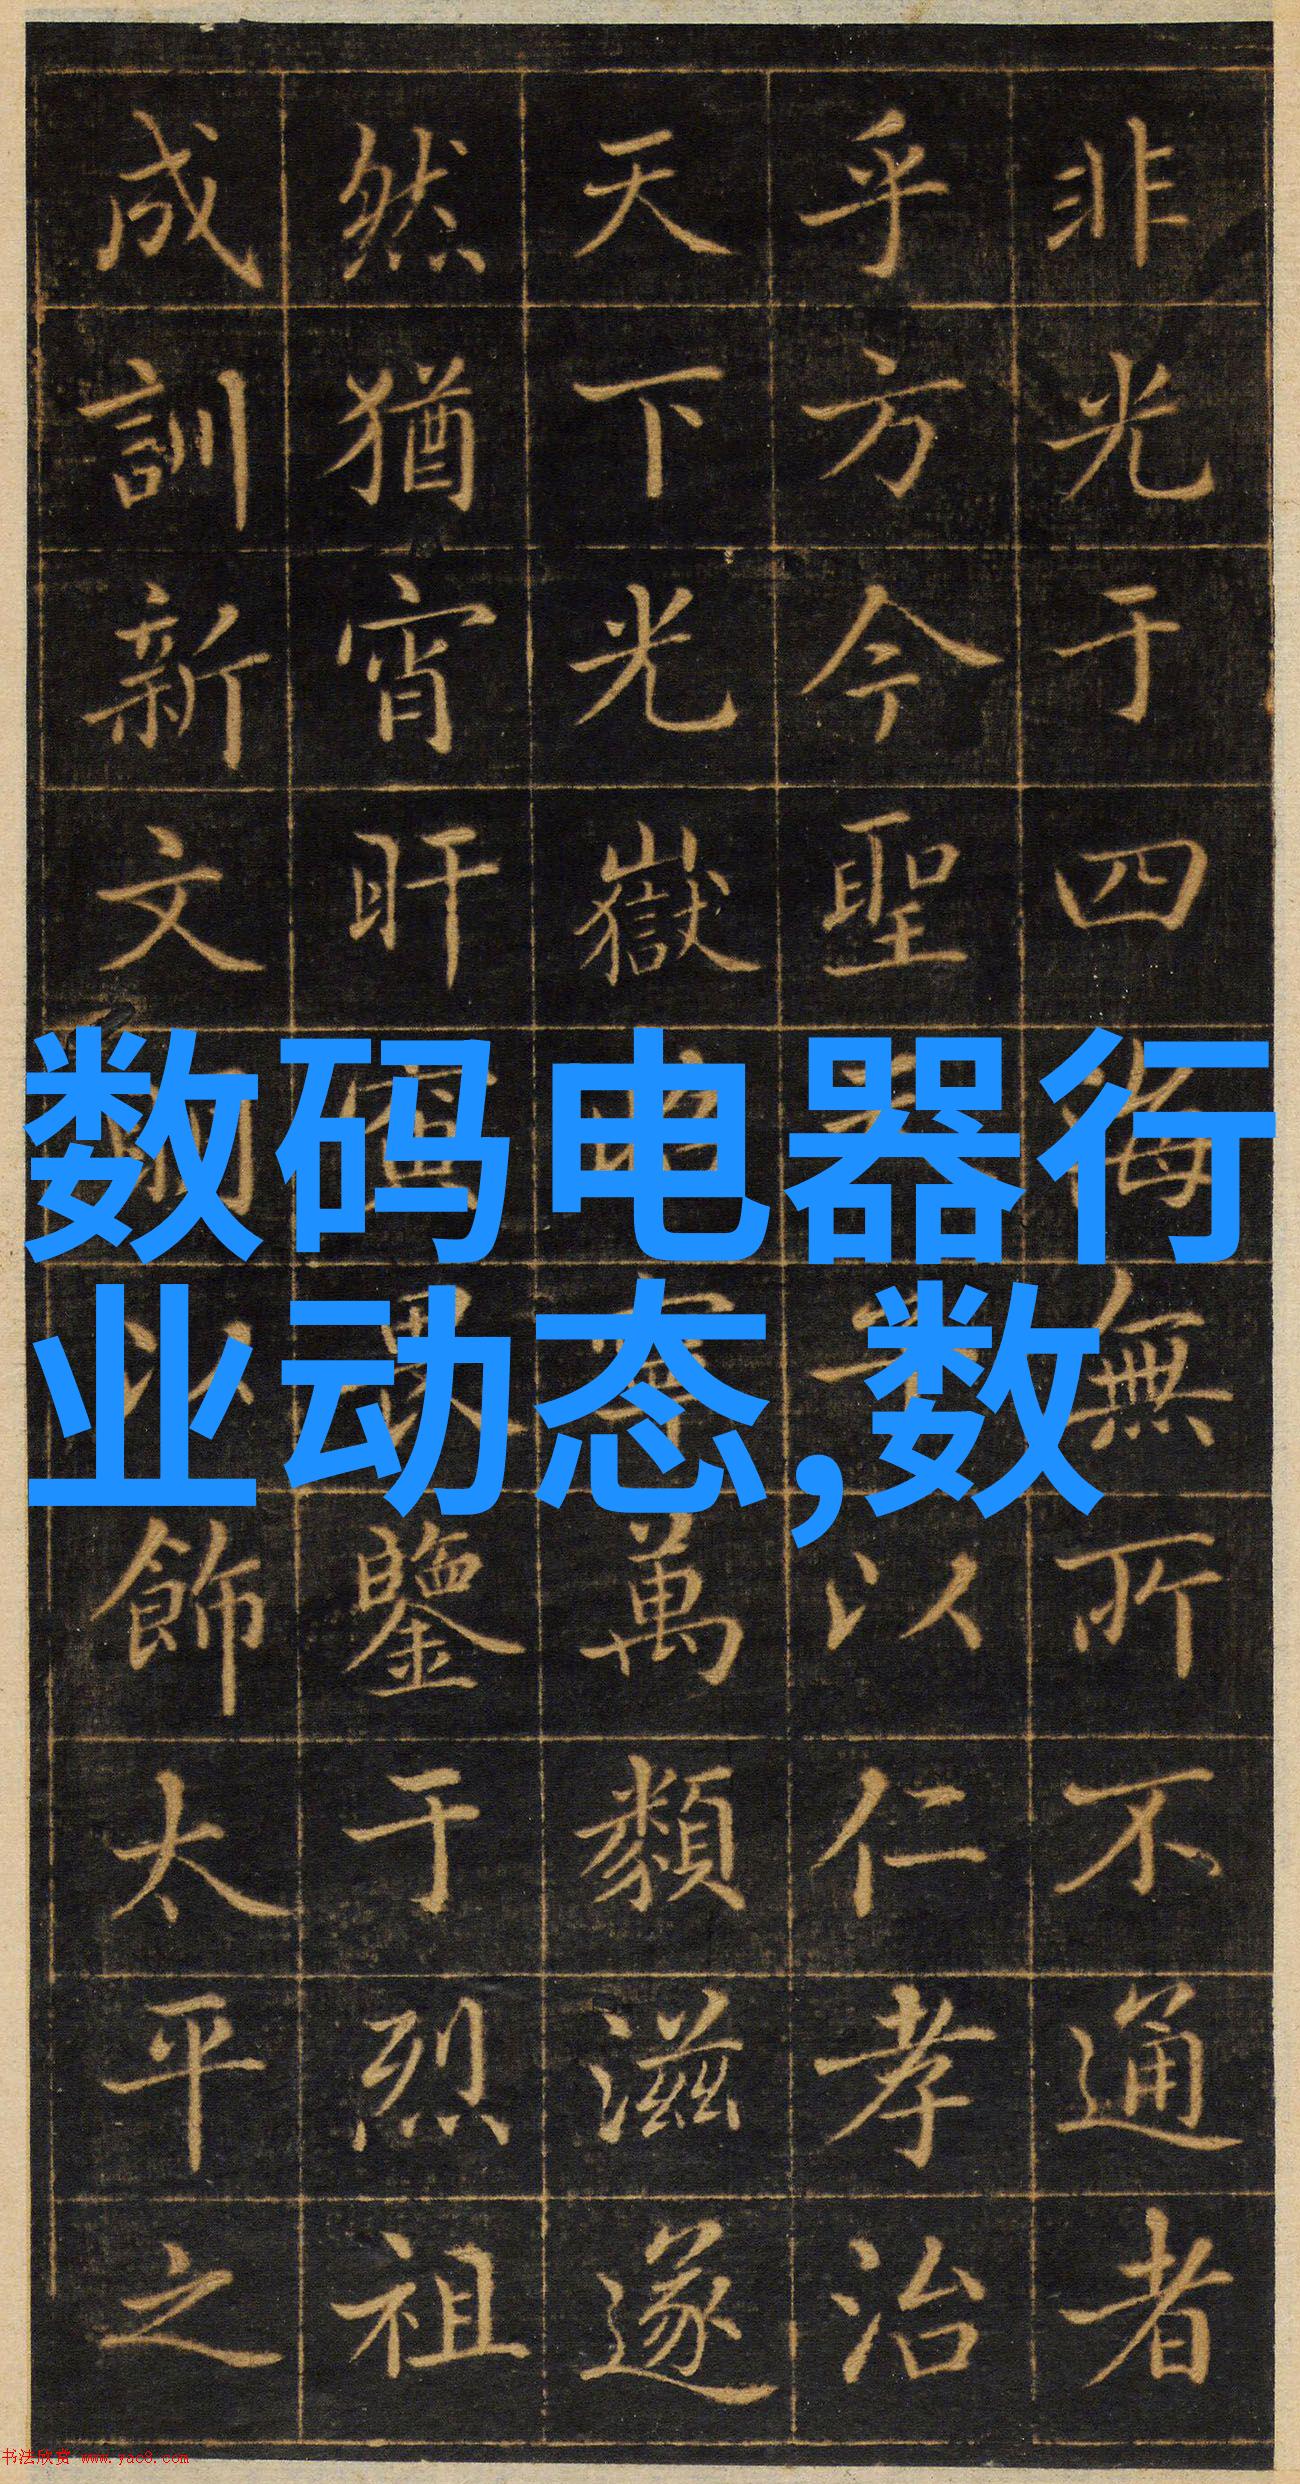 非光于四海無所不通者
乎方今聖以仁孝治
天下光嶽萬類滋遂
然猶宵旰鑒于烈祖
成訓新文以飾太平之
数码电器行
业动态,数
书法欣赏 www.yac8.com